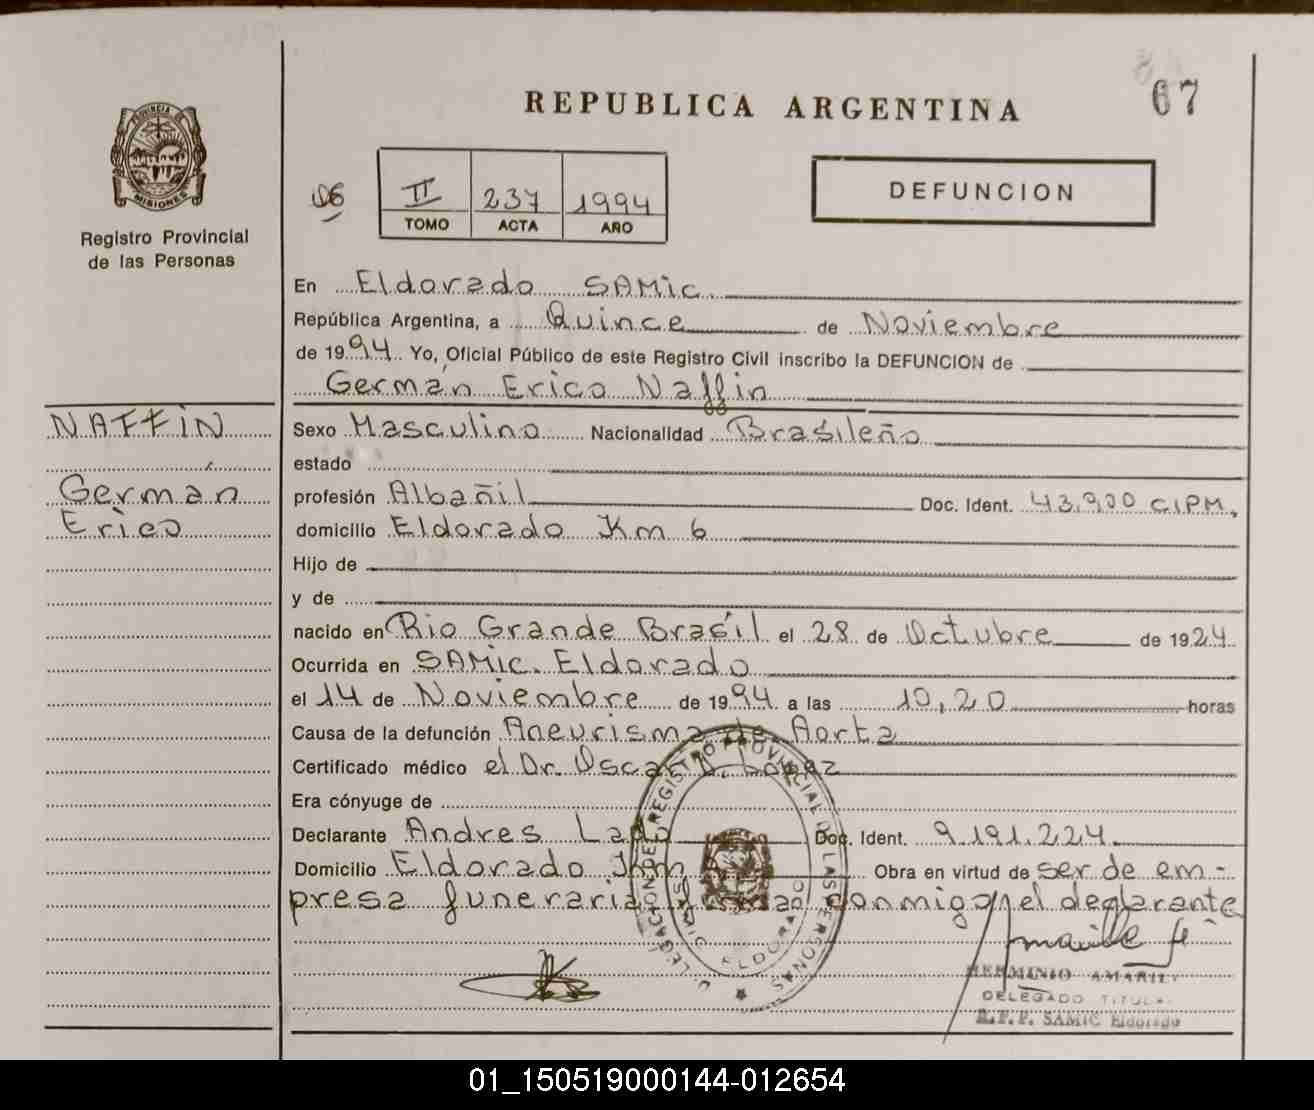 67
REPUBLICA ARGENTINA
PROVINCIA DE MISIONES
Registro Provincial
de las Personas
DEFUNCION
06 II 237 1994
TOMO ACTA AÑO
En Eldorado SAMic.
República Argentina, a Quince de Noviembre
de 1994 Yo, Oficial Público de este Registro Civil inscribo la DEFUNCION de
Germán Erico Naffin
NAFFiN
Germán
Erico
Sexo Masculino Nacionalidad Brasileño
estado
profesión Albañil Doc. Ident. 43.900 CIPM.
domicilio Eldorado Km 6
Hijo de
y de
nacido en Rio Grande Brasil el 28 de Octubre de 1924
Ocurrida en SAMic. Eldorado
el 14 de Noviembre de 1994 a las 10,20 horas
Causa de la defunción Aneurisma de Aorta
Certificado médico el Dr. Oscar D. Lopez
Era cónyuge de
Declarante Andres Lado Doc. Ident. 9.191.224
Domicilio Eldorado Km Obra en virtud de ser de em-
presa funeraria firmando conmigo el declarante
DELEGACION DEL REGISTRO PROVINCIAL DE LAS PERSONAS
ELDORADO
HERMINIO AMARIL
DELEGADO TITULAR
SAMIC Eldorado
01_150519000144-012654